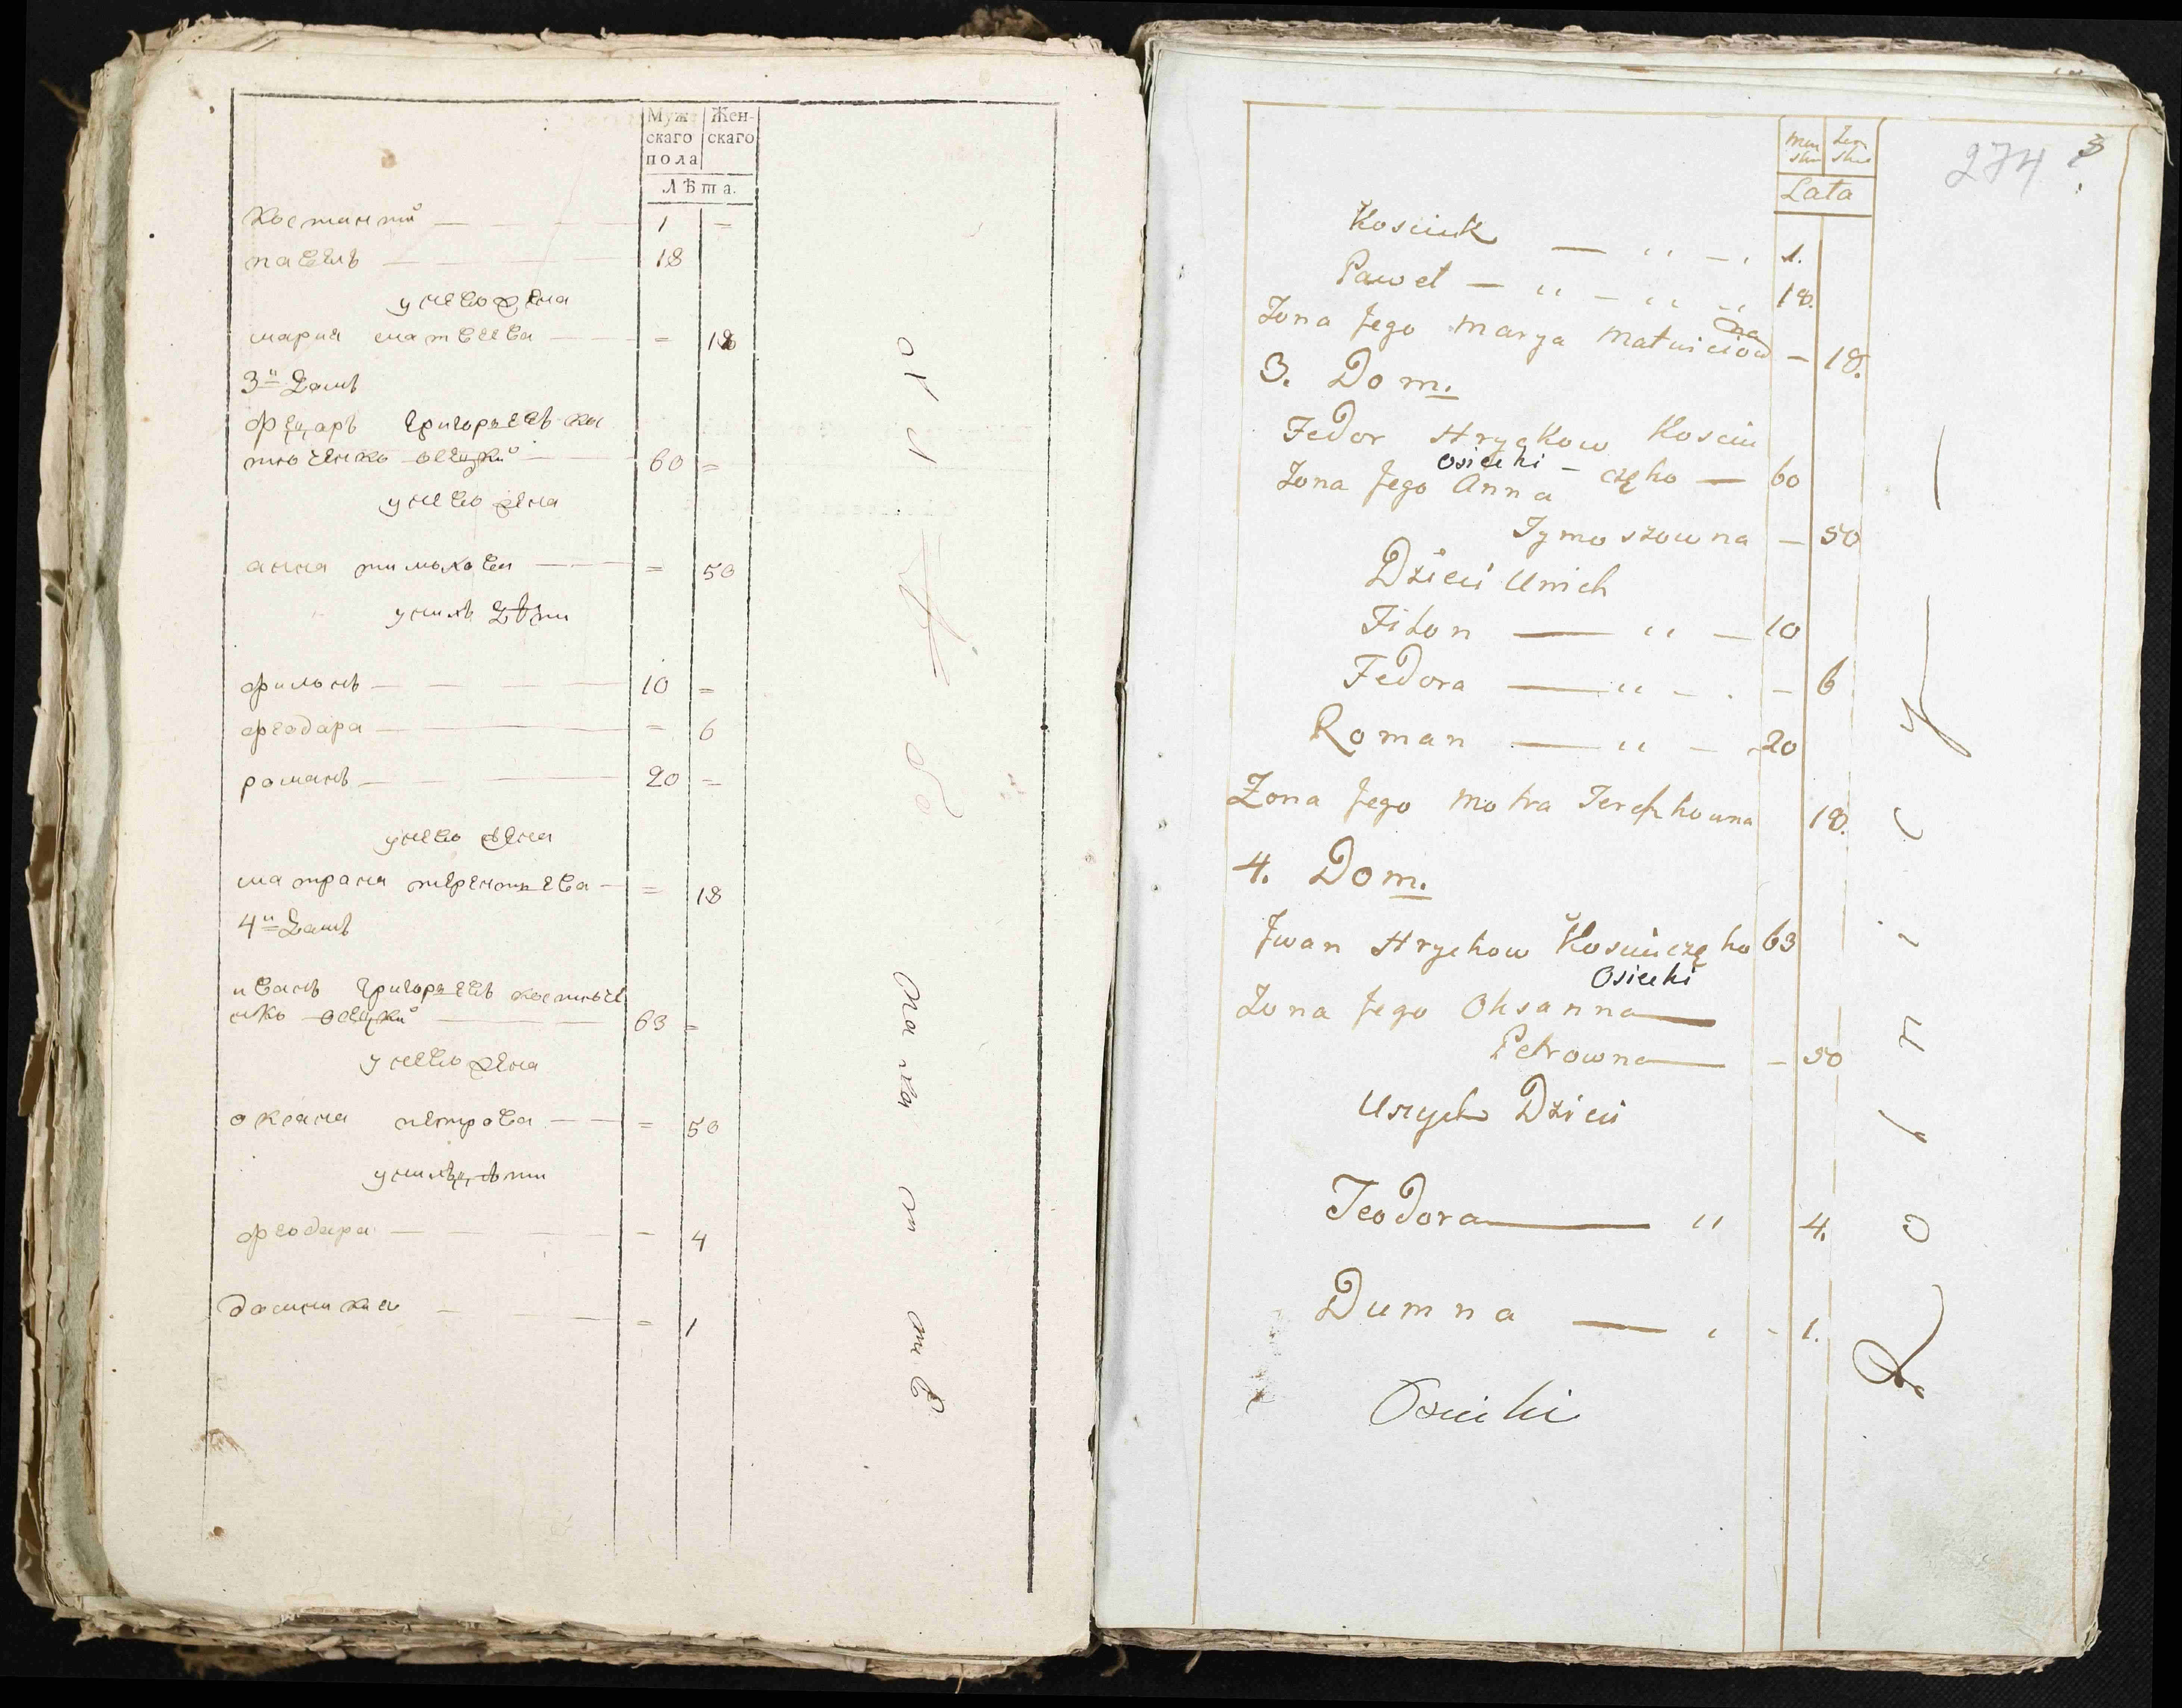 Муж- Жен-
скаго скаго
пола
Лѣта.
Костантий 1 =
павелъ 18
у нево жена
мария матвеева = 18
3й домъ
Федаръ григорьевъ кос
тюченко осецкий 60 =
у нево жена
анна тимохова = 50
у нихъ дѣти
филонъ 10 =
феодара = 6
романъ 20 =
у нево жена
матрана терентьева = 18
4й домъ
иванъ григорьевъ костюче
нко осецкий 63 =
у нево жена
оксана петрова = 50
у нихъ дѣти
феодара - 4
домникия = 1
274
3
Men Zen
skie skie
Lata
Kosciuk — " — " 1.
Pawel — " — " — " 18.
Zona Jego Marya Matwieiow na — 18.
3. Dom.
Fedor Hryckow Kosciu
Osiecki — częko — 60
Zona Jego Anna
Tymoszowna — 50
Dzieci Unich
Filon — " — 10
Fedora — " — . — 6
Roman — " — 20
Zona Jego Motra Terechowna 18.
4. Dom.
Jwan Hryckow Kosciuczęko 63
Osiecki
Zona Jego Oksanna
Petrowna — 50
Uszych Dzieci
Teodora — " 4.
Dumna — , - 1.
Osiecki